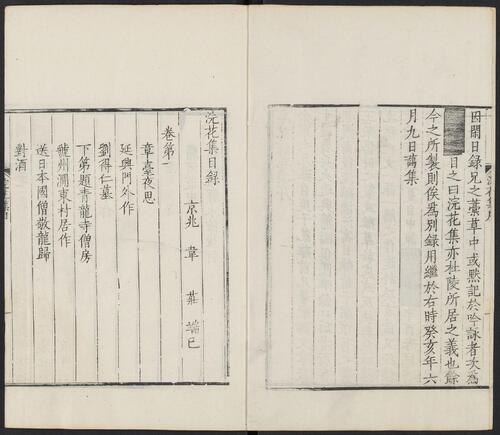 因閑日録兄之藁草中或黙記於吟詠者次爲
目之曰浣花集亦杜陵所居之義也餘
今之所製則俟爲別録用繼於右時癸亥年六
月九日藹集
浣花集目録
京兆韋莊端已
卷第一
章臺夜思
延興門外作
劉得仁墓
下第題青龍寺僧房
虢州澗東村居作
送日本國僧敬龍歸
對酒